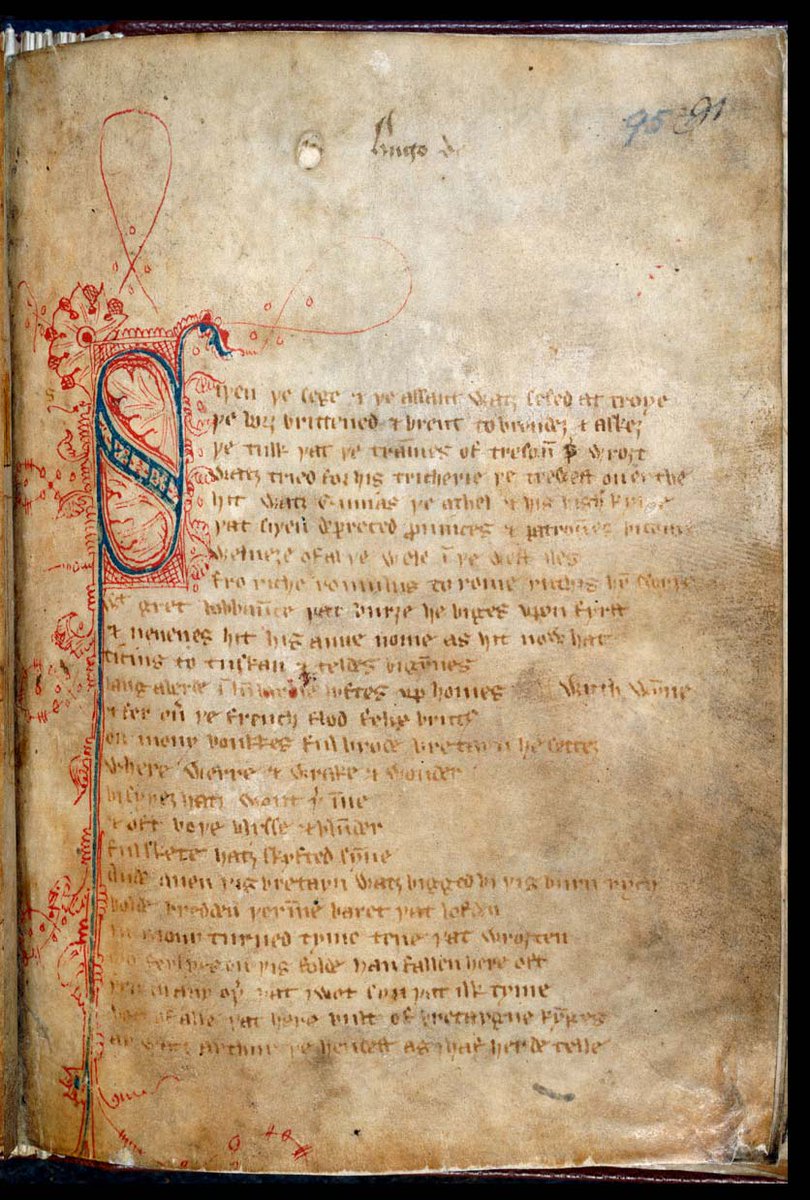 hugo de
95 91
Siþen þe sege & þe assaut watz sesed at troye
þe borȝ brittened & brent to brondeȝ & askez
þe tulk þat þe tra̅mes of treson̅ þ̲ wroȝt
Watz tried for his tricherie þe trewest on erthe
hit watz Ennias þe athel & his highe kynde
þat siþen depreced prouinces & patrounes bicome
Welneȝe of al þe wele i̅ þe west iles
fro riche romulus to rome ricchis hy̅ swyþe
gret bobbau̅ce þat burȝe he biges vpon fyrst
& neuenes hit his aune nome as hit now hat
ticius to tuskan & teldes bigy̅nes
langaberde i̅ lumbardie lyftes vp homes With wy̅ne
& fer ou̅ þe french flod felix brut9
on mony bonkkes ful brode bretayn he settez
Where werre & wrake & wonder
bi syþez hatz wont þ̅ i̅ne
& oft boþe blysse & blu̅der
ful skete hatz skyfted sy̅ne
Ande quen þis bretayn watz bigged bi þis burn rych
bolde bredden þeri̅ne baret þat lofden
in mony turned tyme tene þat wroȝten
mo ferlyes on þis folde han fallen here oft
þen in any oþ̅ þat I wot syn þat ilk tyme
bot of alle þat here bult of bretaygne ky̅ges
ay watz arthur þe hendest as I haf herde telle